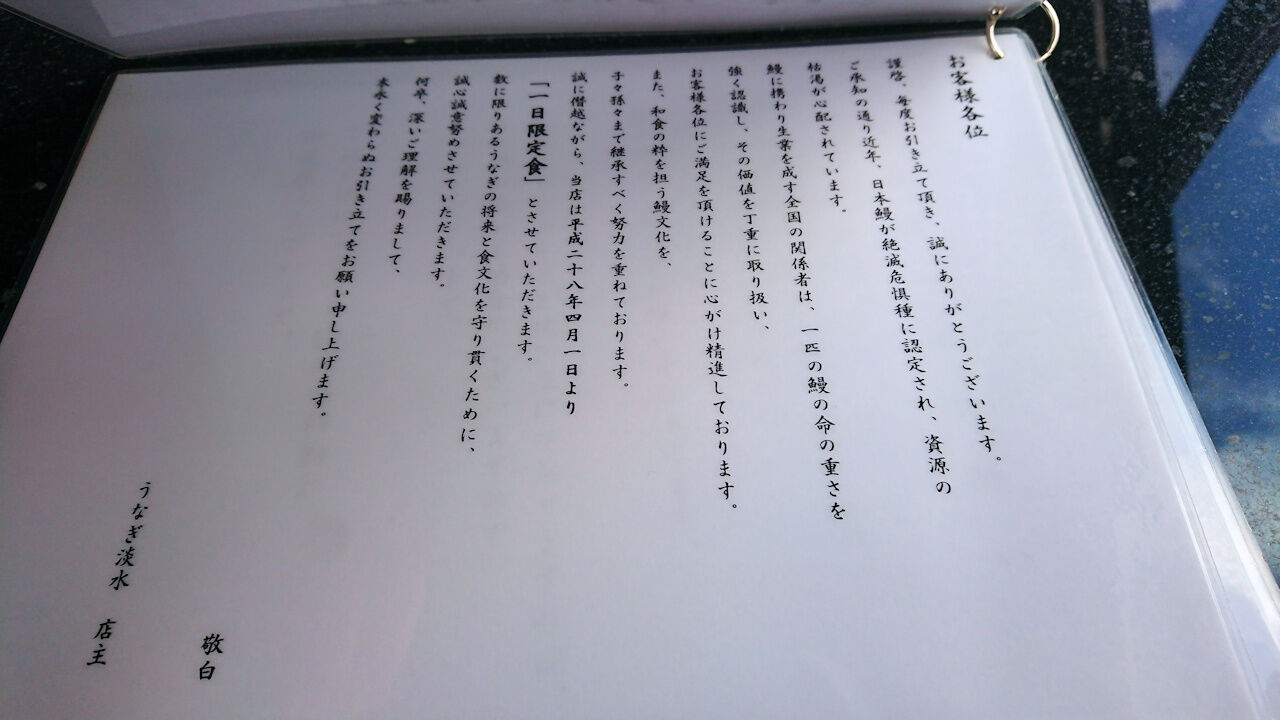 お客様各位
謹啓、毎度お引き立て頂き、誠にありがとうございます。
ご承知の通り近年、日本鰻が絶滅危惧種に認定され、資源の
枯渇が心配されています。
鰻に携わり生業を成す全国の関係者は、一匹の鰻の命の重さを
強く認識し、その価値を丁重に取り扱い、
お客様各位にご満足を頂けることに心がけ精進しております。
また、和食の粋を担う鰻文化を、
子々孫々まで継承すべく努力を重ねております。
誠に僭越ながら、当店は平成二十八年四月一日より
「一日限定食」とさせていただきます。
数に限りあるうなぎの将来と食文化を守り貫くために、
誠心誠意努めさせていただきます。
何卒、深いご理解を賜りまして、
末永く変わらぬお引き立てをお願い申し上げます。
敬白
うなぎ淡水 店主